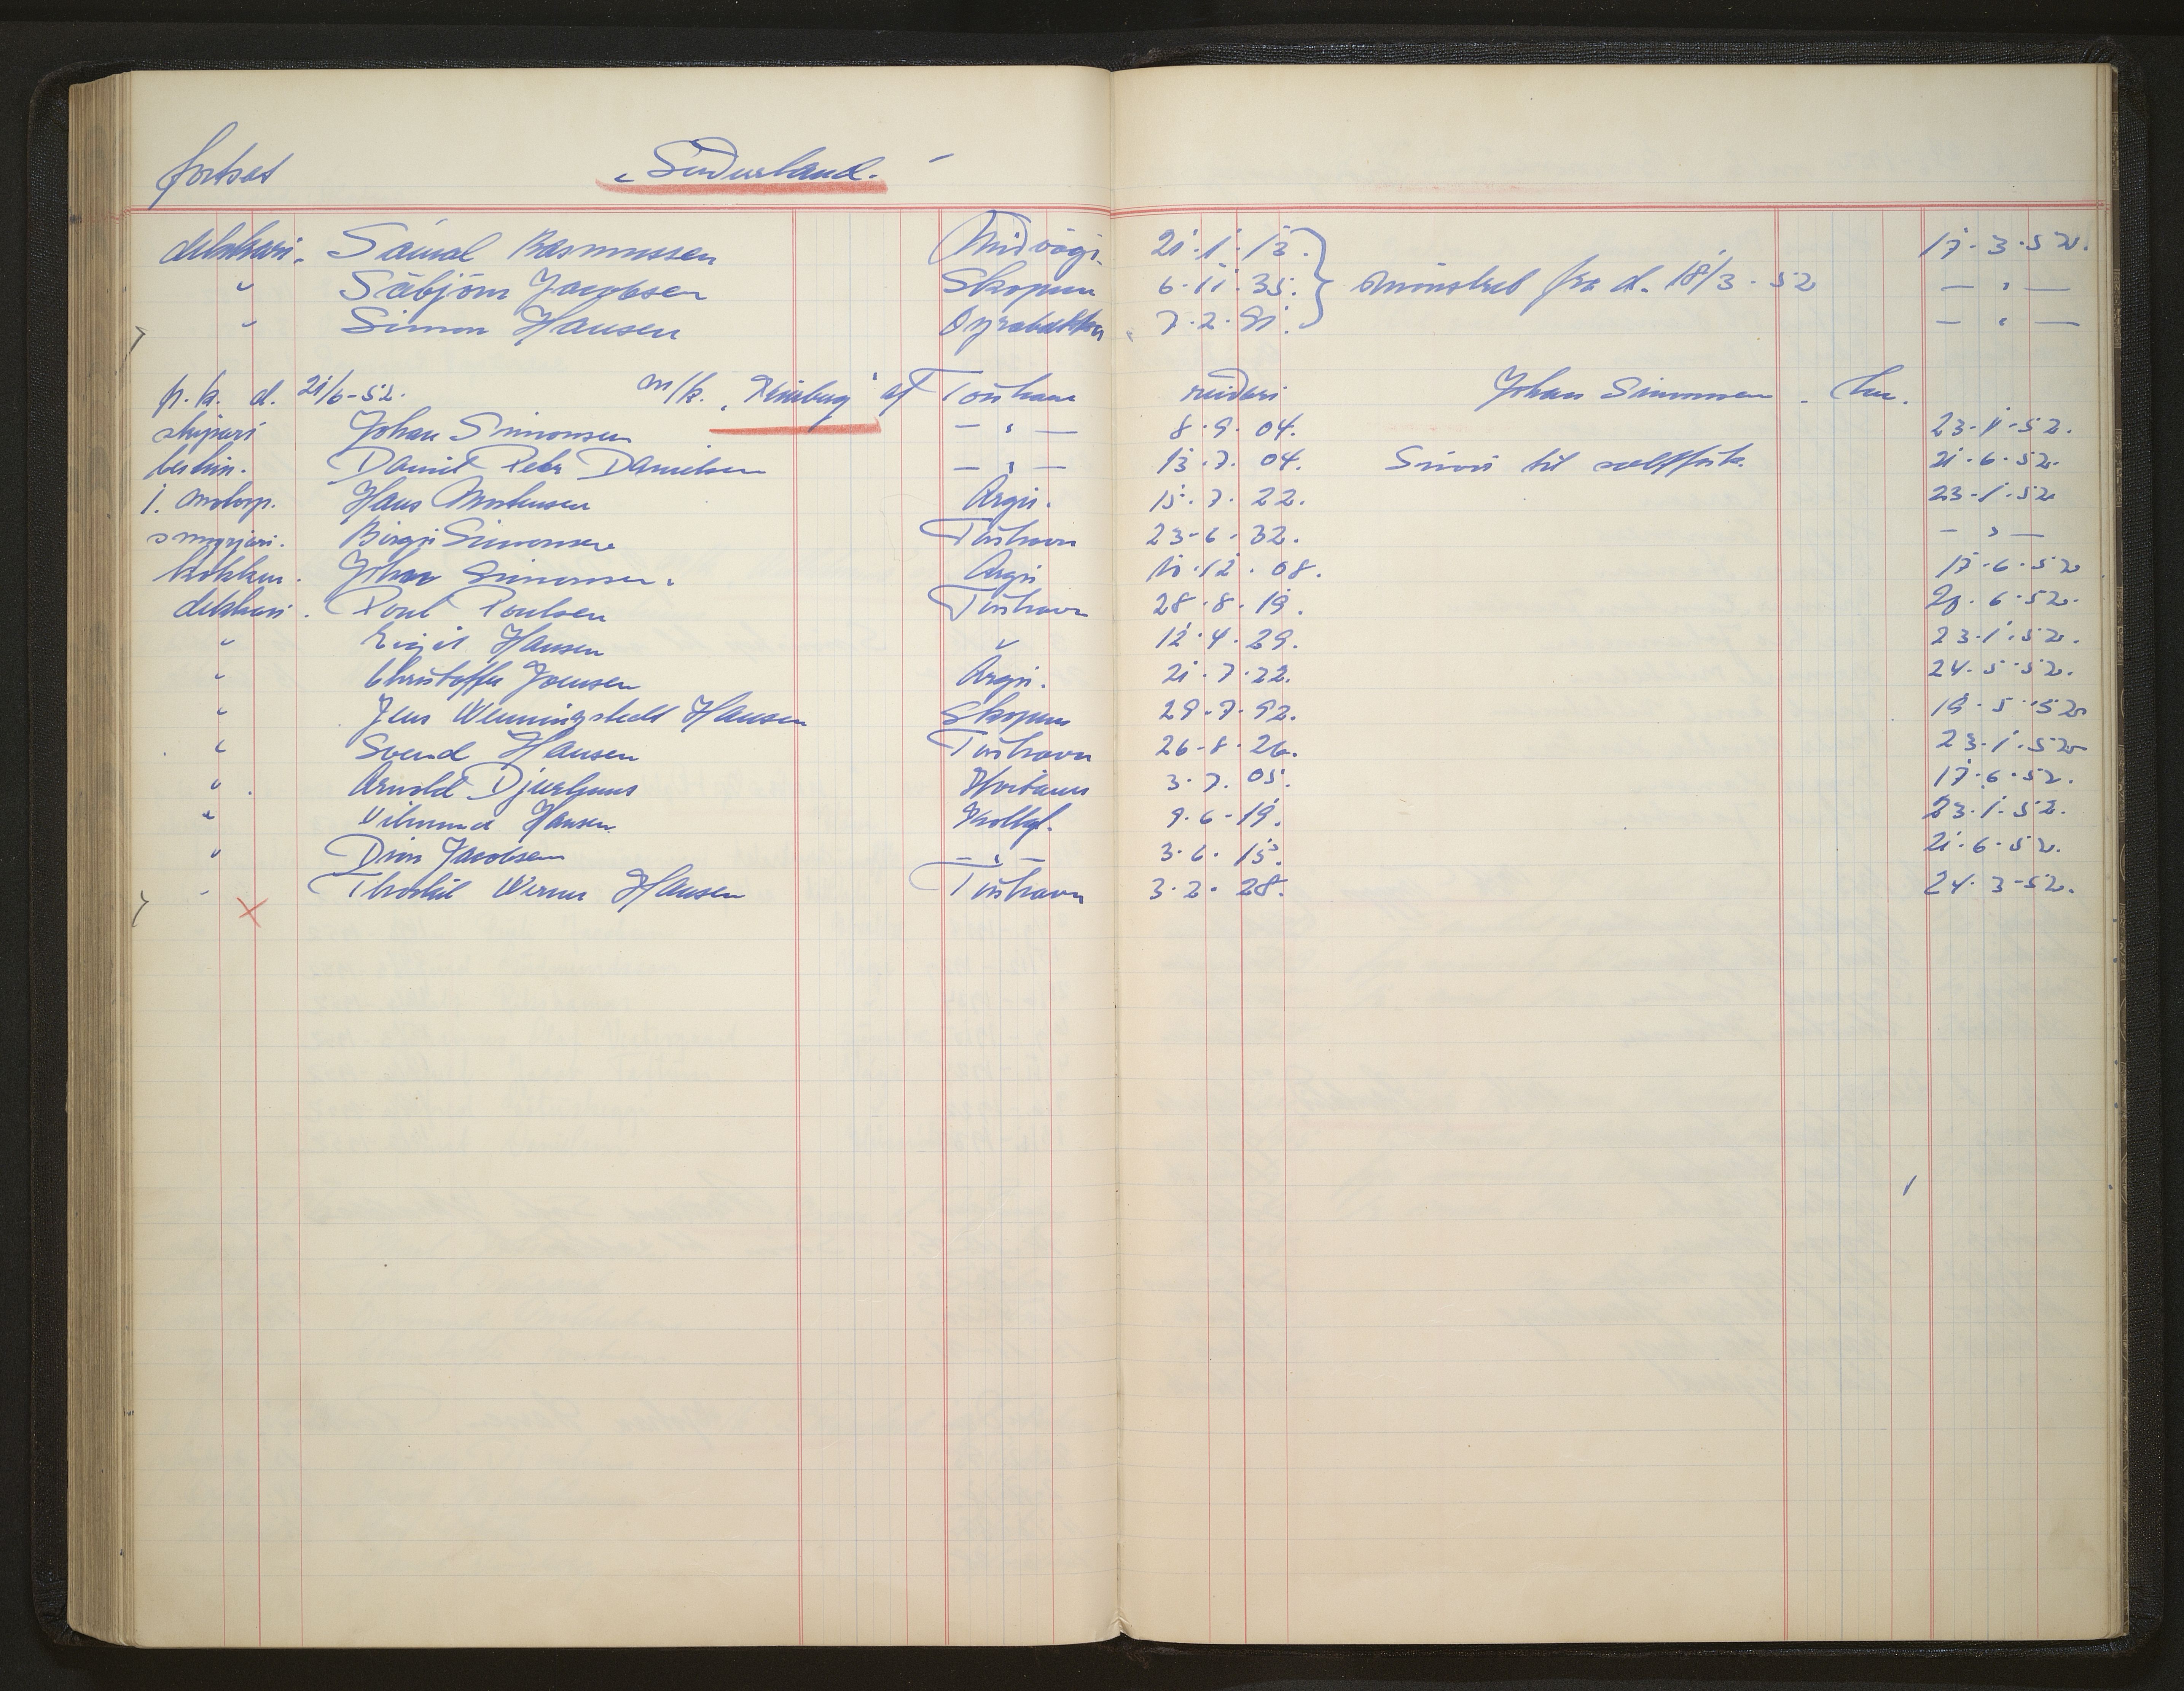 fortsat „Suðurland.“
dekkari. Sámal Rasmussen Miðvági. 21.1.13. 17.3.52.
" Säbjörn Jacobsen Skopun 6.11.35. mönstret fra d. 18/3.52 — " —
" Simon Hansen Oyrabakka 7.2.91. — " —
p.k. d. 21/6-52. m/k. af Tórshavn reiðari Johan Simonsen. Thn.
skipari Johan Simonsen — " — 8.9.04. 23.1.52.
bestim. Daniel Peter Danielsen — " — 13.7.04. til 21.6.52.
1. motorp. Hans Mortensen Argir. 15.7.22. 23.1.52
smyrjari. Birgir Simonsen Tórshavn 23-6-32. — " —
kokkur. Johan Simonsen. Argir 10.12.08. 17.6.52
dekkari. Poul Poulsen Tórshavn 28.8.19. 20.6.52.
" Eigil Hansen " 12.4.29. 23.1.52.
" Christoffer Joensen Argir. 21.7.22. 24.5.52.
" Jens Wenningstedt Hansen Skopun 29.7.92. 19.5.52
" Svend Hansen Tórshavn 26-8-26. 23.1.52
" Arnold Djurhuus 3.7.05. 17.6.52.
" Vilmund Hansen Kollaf. 9.6-19. 23.1.52.
" Jacobsen — " — 3.6.15. 21.6.52.
" Thorkil Werner Hansen Tórshavn 3.2.28. 24.3-52.